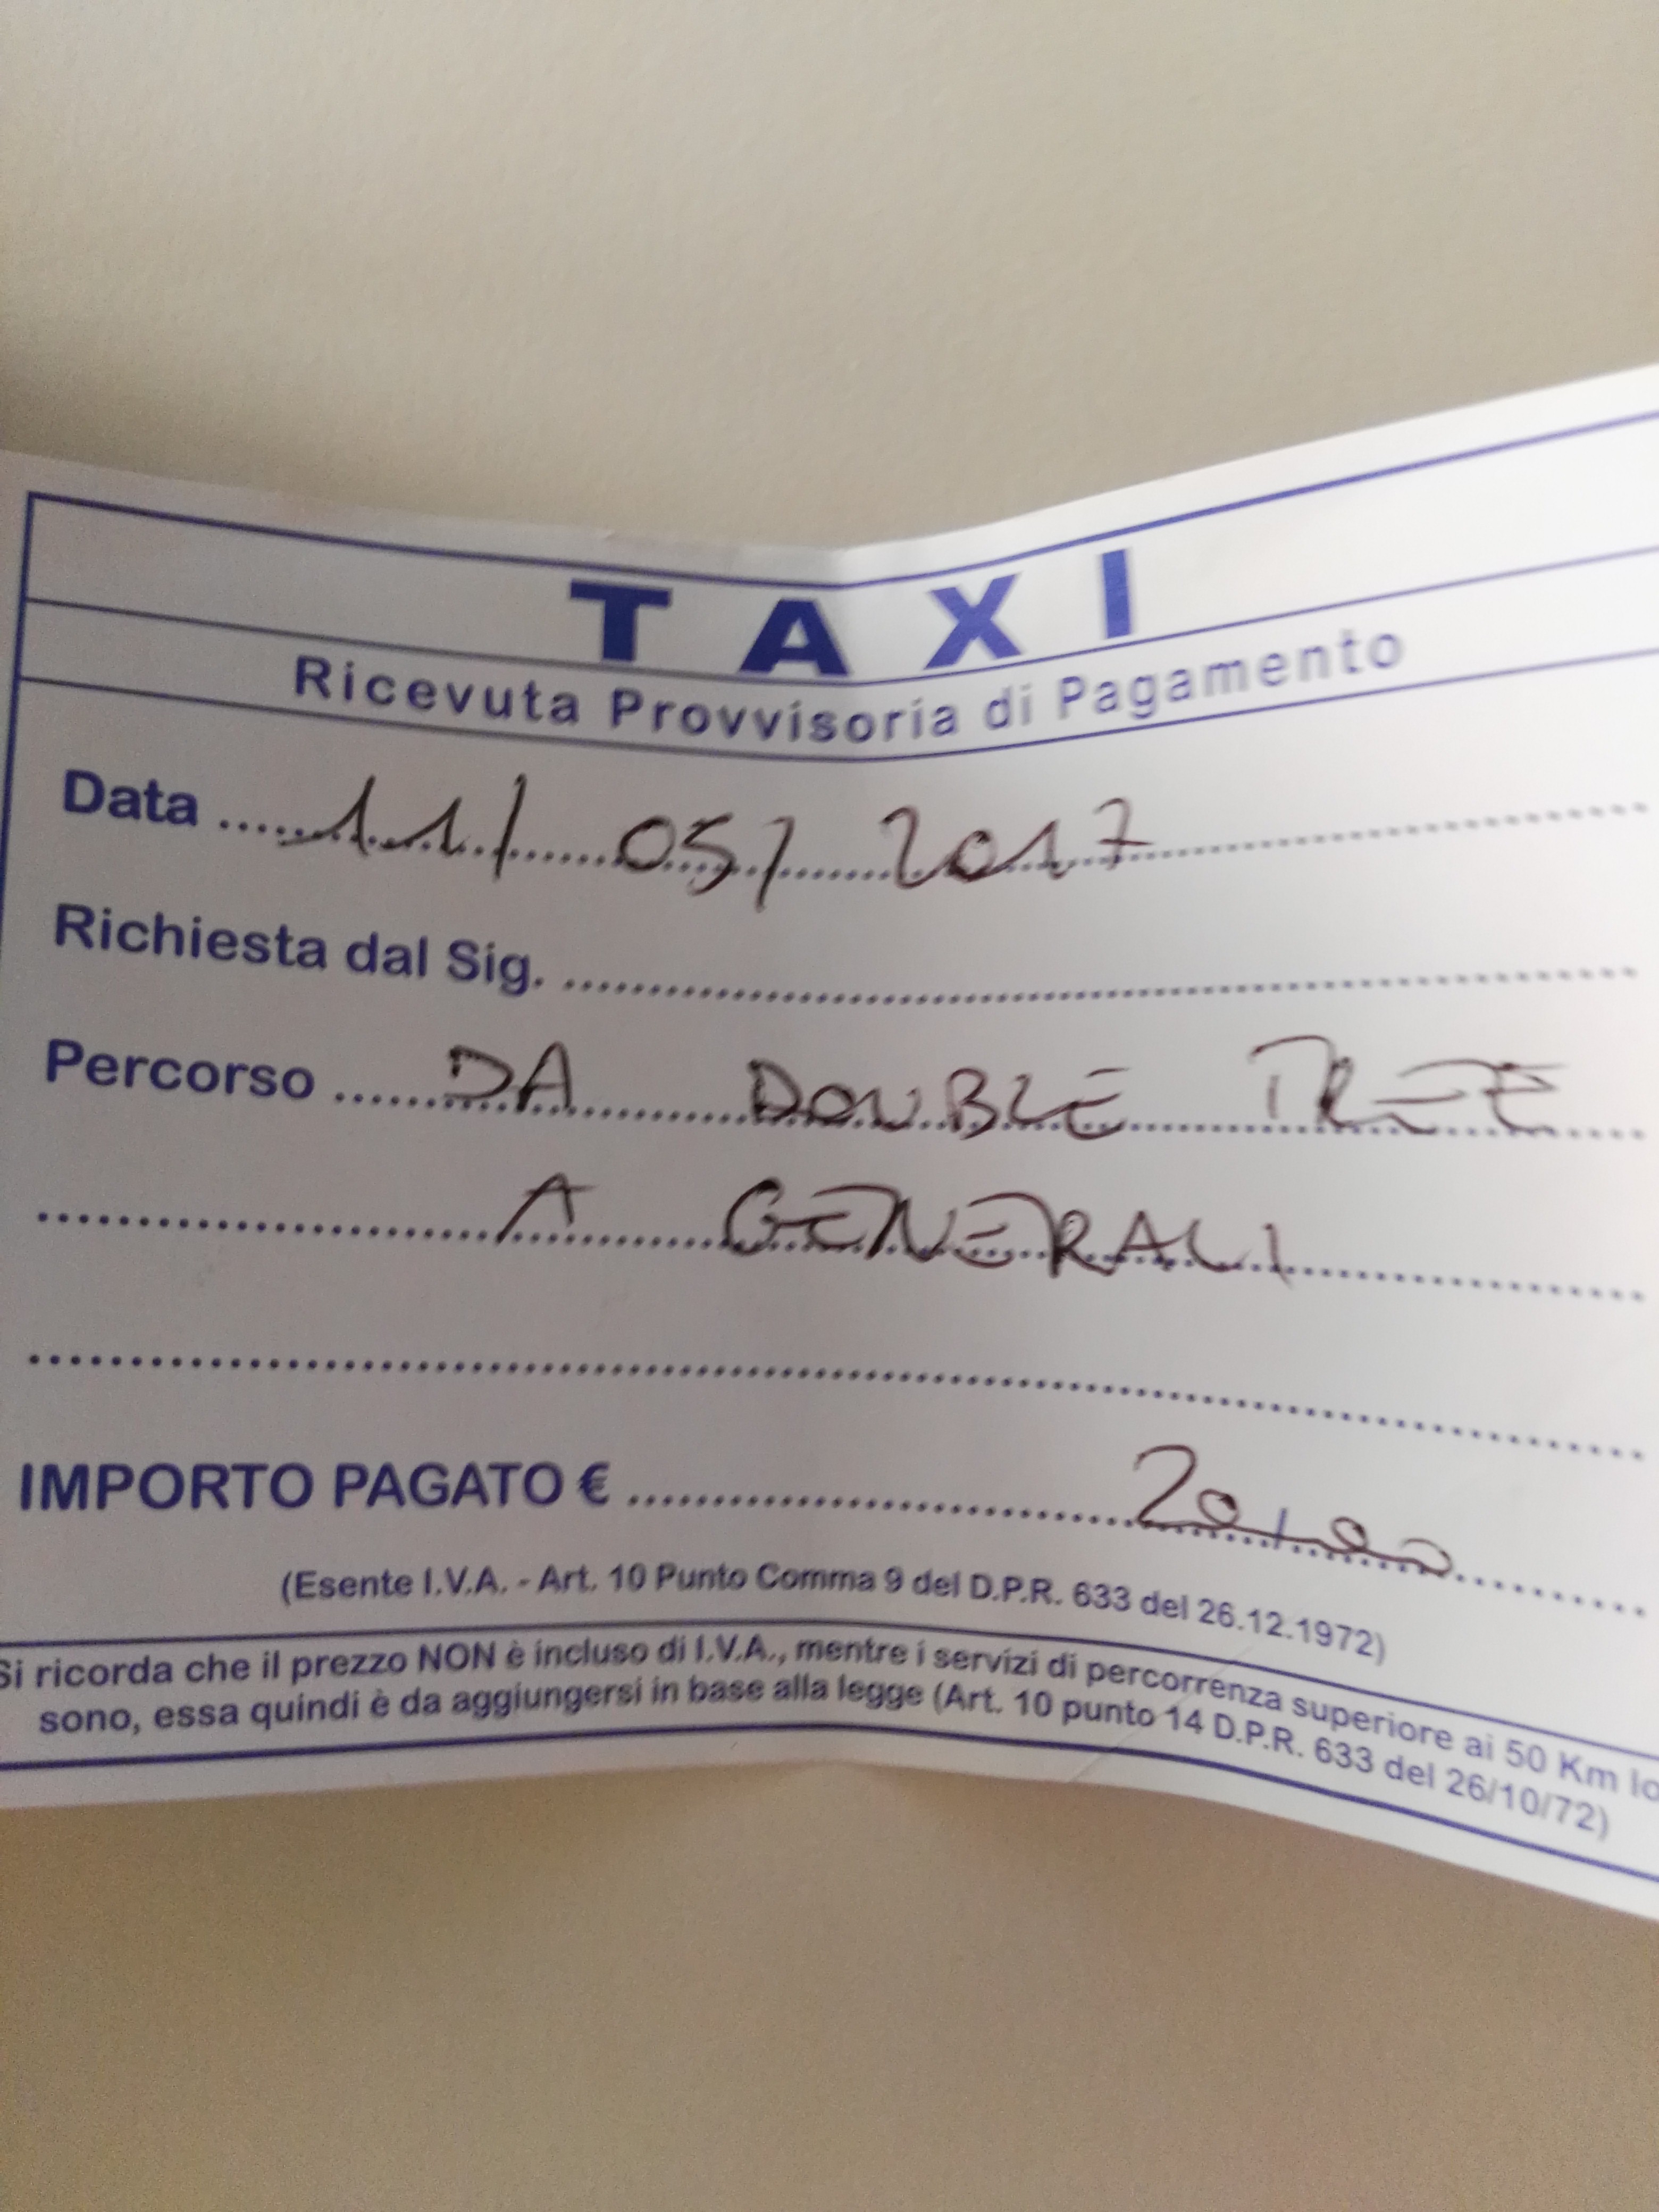 TAXI
Ricevuta Provvisoria di Pagamento
Data ..... 11/ 05/ 2017
Richiesta dal Sig.
Percorso ..... DA DOUBLE TREE
A GENERALI
IMPORTO PAGATO € ..... 20,00
(Esente I.V.A. - Art. 10 Punto Comma 9 del D.P.R. 633 del 26.12.1972)
Si ricorda che il prezzo NON è incluso di I.V.A., mentre i servizi di percorrenza superiore ai 50 Km lo
sono, essa quindi è da aggiungersi in base alla legge (Art. 10 punto 14 D.P.R. 633 del 26/10/72)